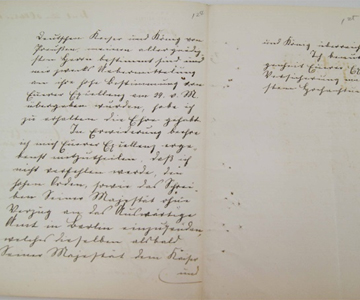 deutschen Kaiser und König von
Preußen, meinem allergnädig-
sten Herrn bestimmt sind und
mir zwecks Uebermittelung
an ihre hohe Bestimmung von
Euerer Exzellenz am 29. v. M.
übergeben wurden, habe ich
zu erhalten die Ehre gehabt.
In Erwiderung beehre
ich mich Euerer Exzellenz erge-
benst mitzutheilen, daß ich
nicht verfehlen werde, den
hohen Orden, sowie das Schrei-
ben Seiner Majestät ohne
Verzug an das Auswärtige
Amt in Berlin einzusenden,
welches dieselben alsbald
Seiner Majestät dem Kaiser
und
und König überreich
Ich benut
genheit Euerer
Versicherung